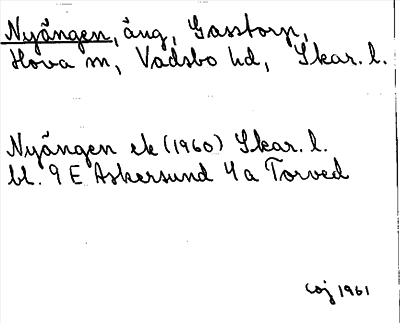 Nyängen, äng, Gasstorp,
Hova sn, Vadsbo hd, Skar. l.
Nyängen ek (1960) Skar. l.
bl. 9 E Askersund 4 a Torved
1961